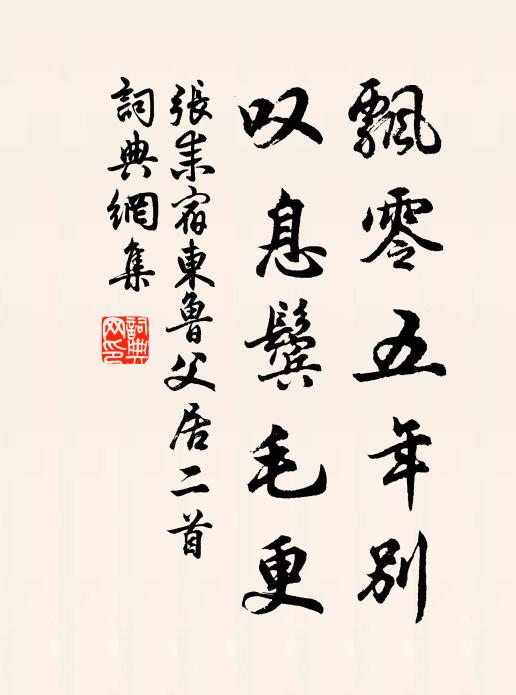 飄零五年別
叹息鬓毛更
張耒宿東魯父居二首
詞典網集
詞典网印